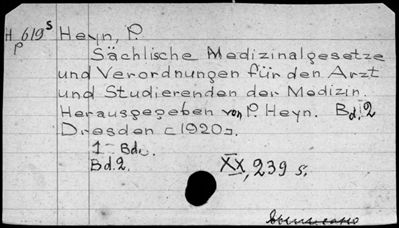 H 619 s Heyn, P.
p
Sächlische Medizinalgesetze
und Verordnungen für den Arzt
und Studierenden der Medizin.
Herausgegeben von P. Heyn. Bd. 2
Dresden [1920].
1- Bde.
Bd. 2. XX, 239 s.